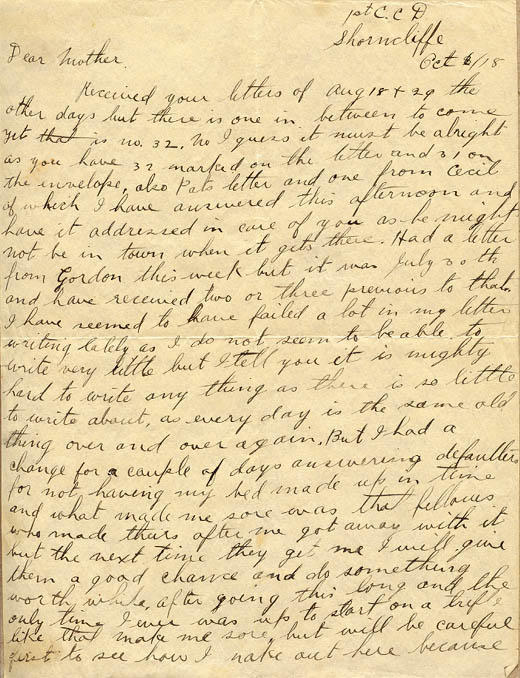 1st C.C.D
Shorncliffe
Oct /18
Dear Mother.
Received your letters of Aug 18 + 29 the
other days but there is one in between to come
yet that is no. 32. No I guess it must be alright
as you have 32 marked on the letter and 31 on
the envelope, also Pats letter and one from Cecil
of which I have answered this afternoon and
have it addressed in care of you as he might
not be in town when it gets there. Had a letter
from Gordon this week but it was July 30th
and have received two or three previous to that.
I have seemed to have failed a lot in my letter
writing lately as I do not seem to be able to
write very little but I tell you it is mighty
hard to write any thing as there is so little
to write about, as every day is the same old
thing over and over again. But I had a
change for a couple of days answering defaulters
for not having my bed made up in time
and what made me sore was that fellows
who made thars after me got away with it
but the next time they get me I will give
them a good chance and do something
worth while, after going this long and the
only time I ever was up to start on a
like that make me sore, but will be careful
first to see how I make out here because